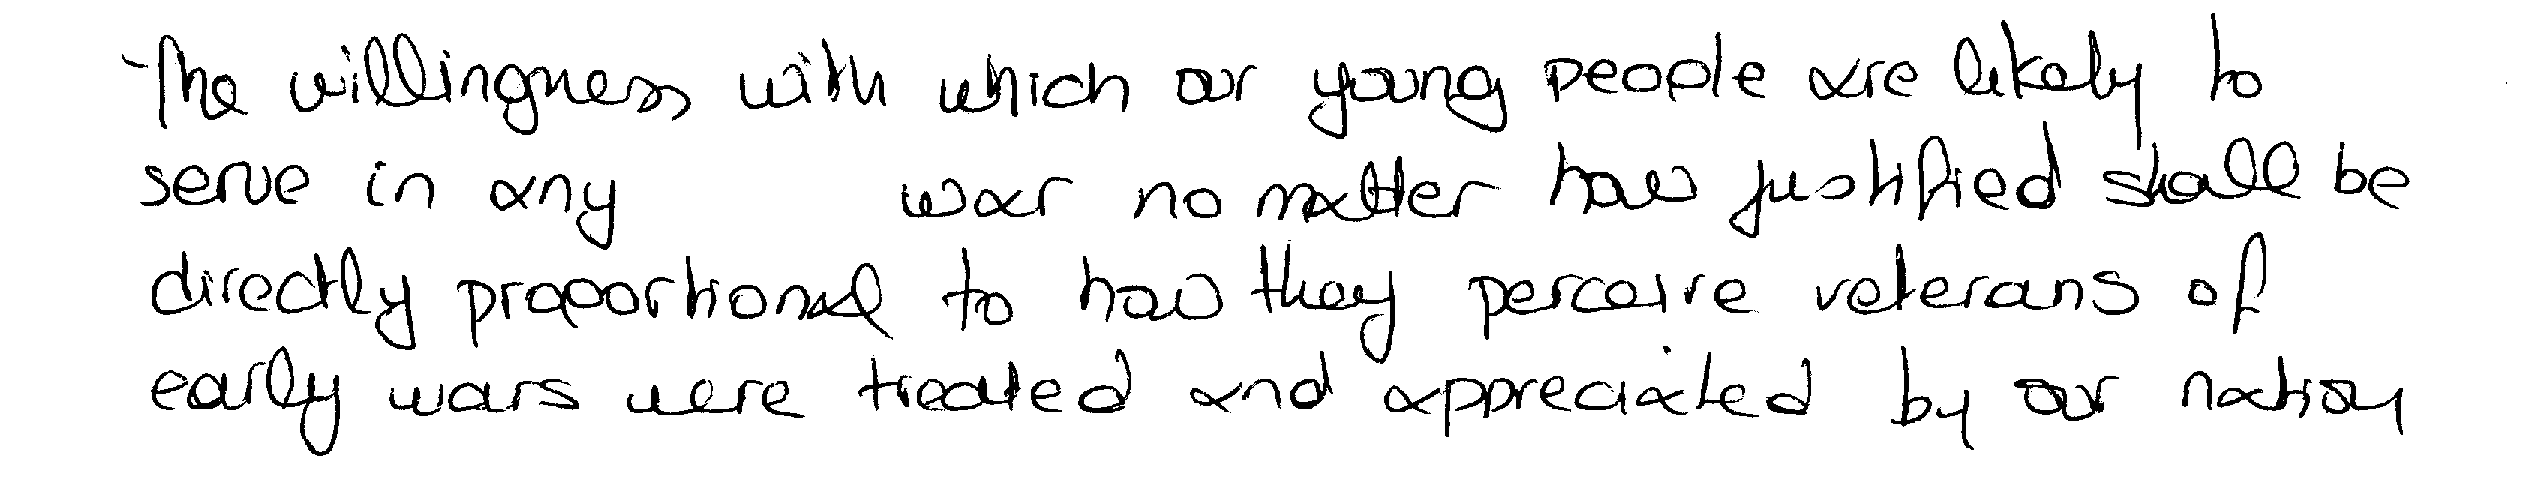 The willingness with which our young people are likely to
serve in any war no matter how justified shall be
directly proportional to how they perceive veterans of
early wars were treated and appreciated by our nation